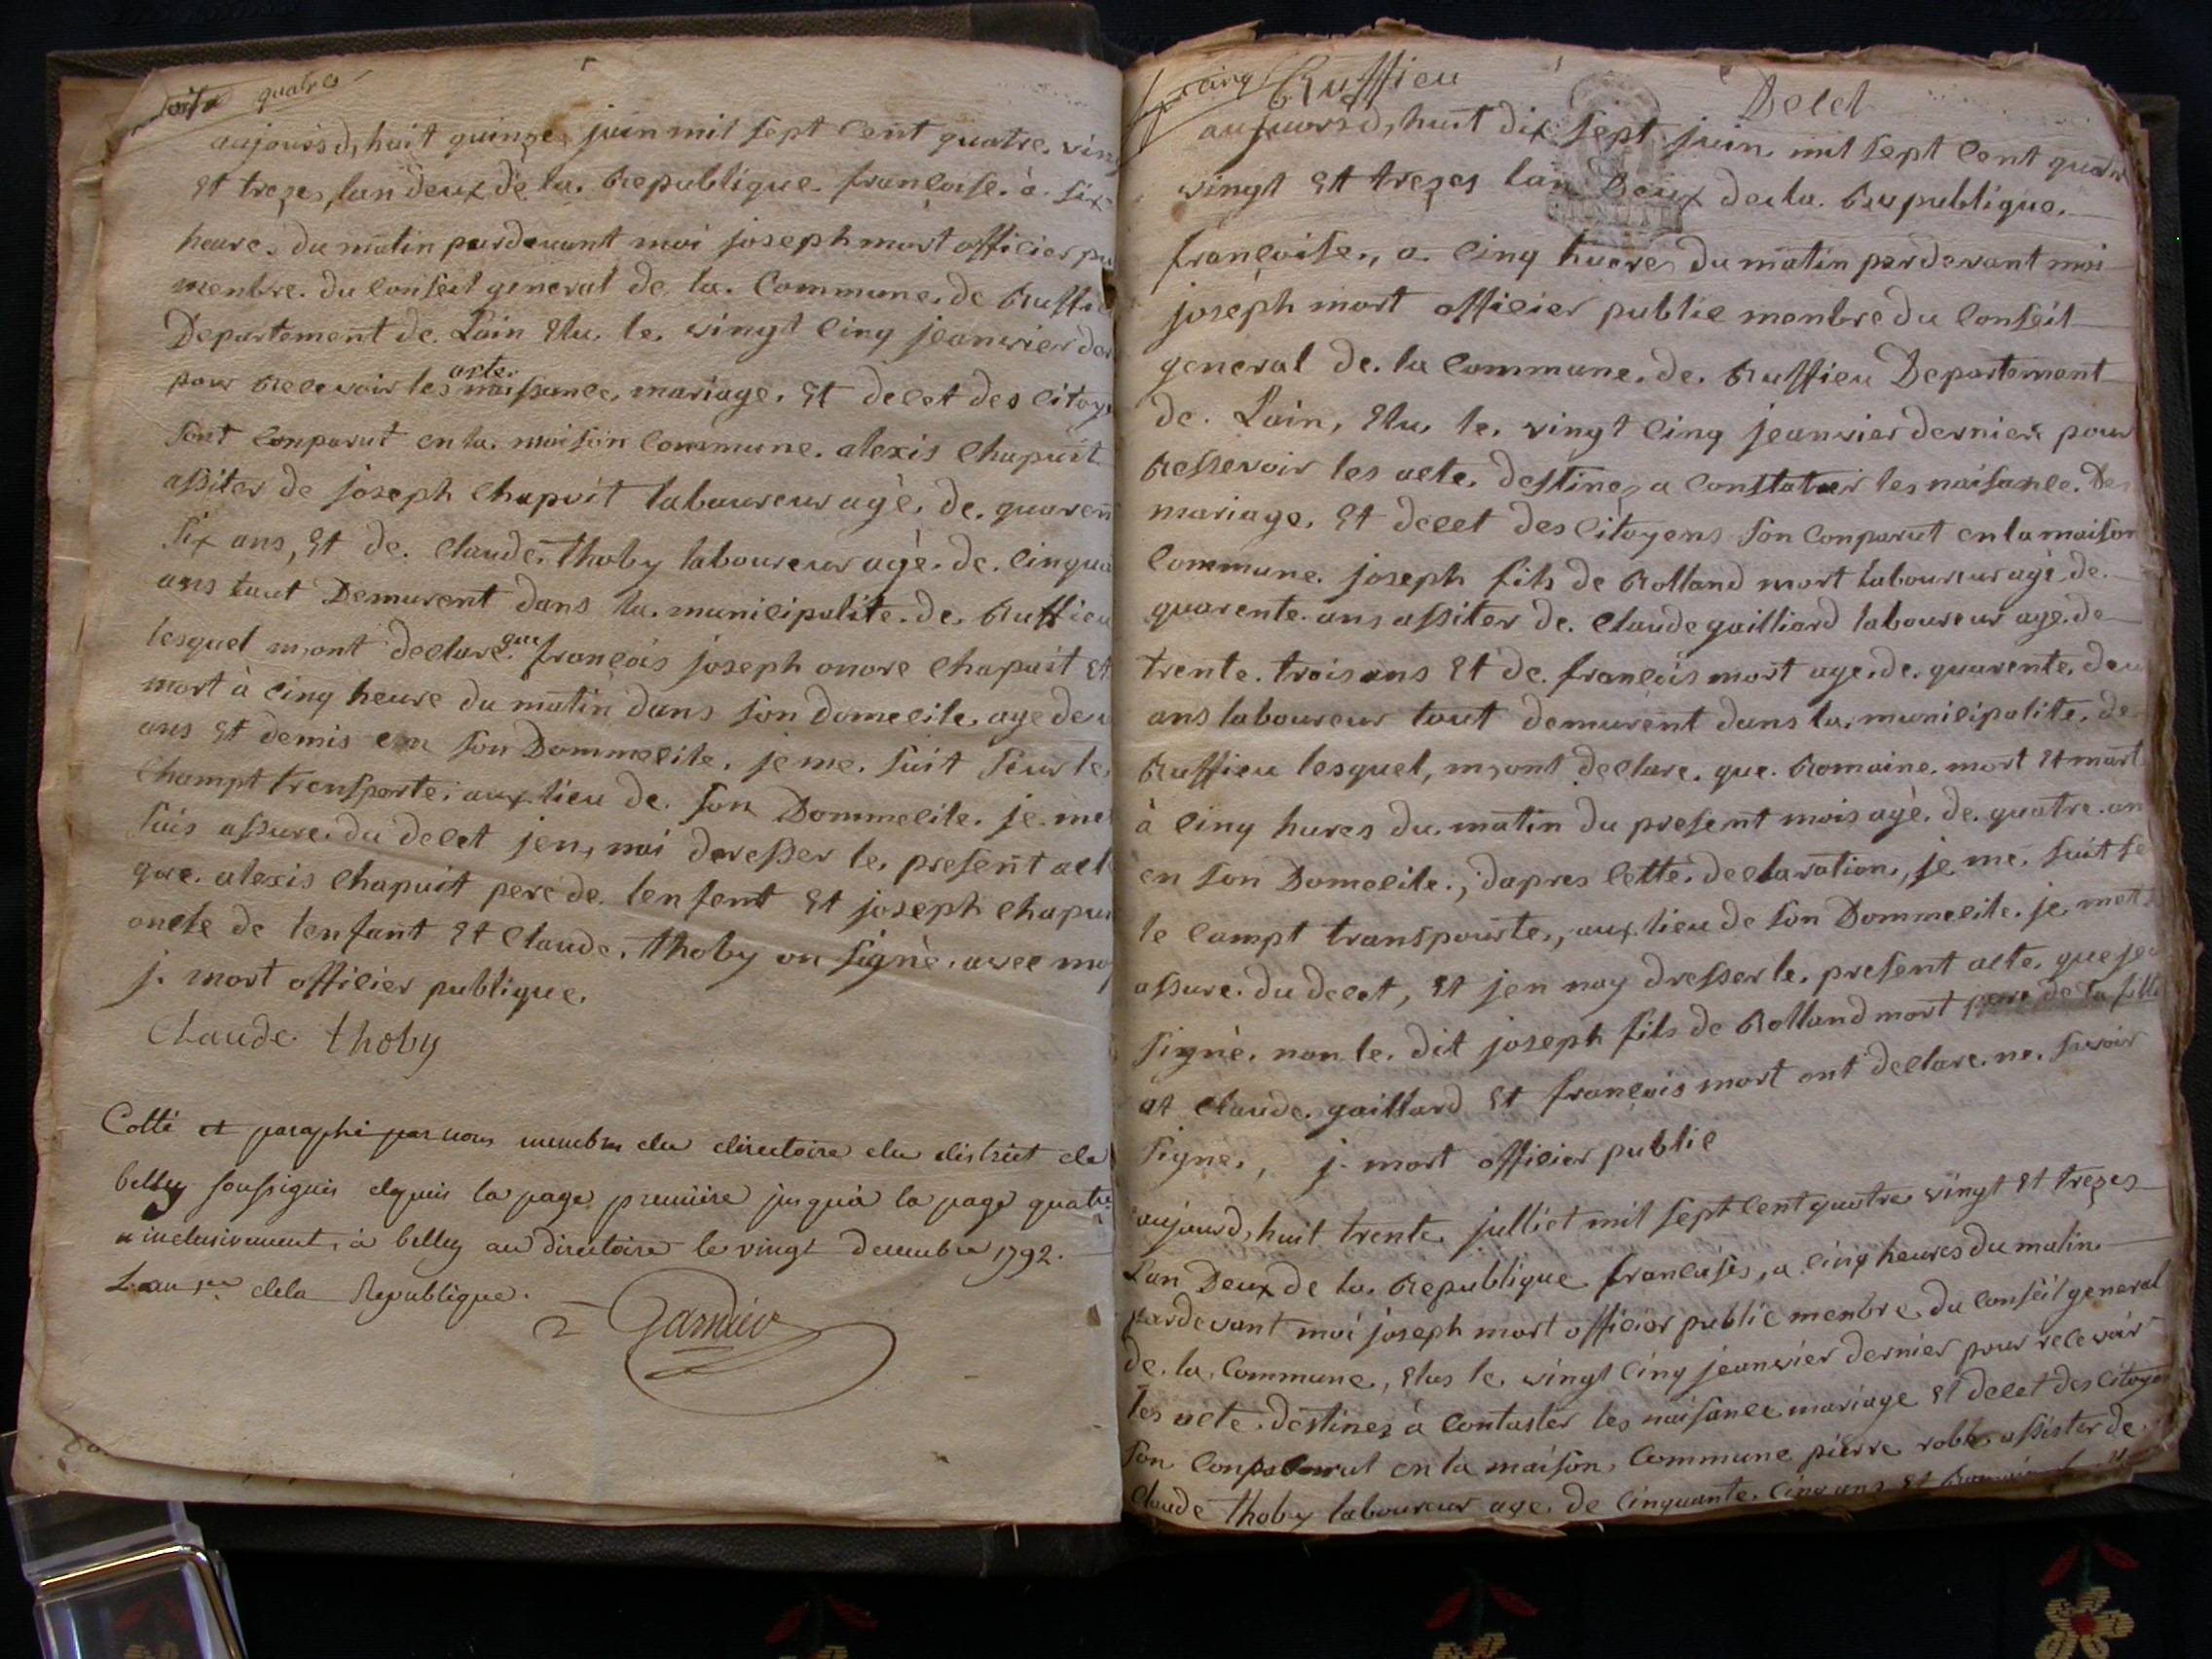 quatre
aujourd,huit quinze juin mil sept cent quatre. vin
et trezes, lan deux de la. Republique. francoise. à. six
heure. du matin pardevant moi joseph mort officier pu
menbre. du conseil general de la. Commune. de Ruffie
Departement de. Lain Elu. le. vingt cinq jeanvier der
acte.
pour Recevoir les naissance, mariage. Et decet des citoye
sont conparut en la. maison commune. alexis chapuit
assiter de joseph chapuit laboureur agè. de. quaren
six ans, Et de. claude. thoby laboureur agè. de. cinqua
ans tout Demurent dans la. municipalite. de. Ruffieu
que
lesquel m,ont declare. francois joseph onore chapuit Et
mort à cinq heure du matin dans son domecile. age deu
ans Et demis en son Dommecile. je me. suit seur le
champt transporte. aux lieu de. son Dommecile. je. me
suis assure. du decet jen, nai deresser le. present act
que. alexis chapuit pere de. lenfent Et joseph chapui
oncle de lenfant Et claude. thoby on signè. avec moi
j. mort officier publique.
Claude thoby
Cotté et paraphé par nous membres du directoire du district de
belley soussignés depuis la page première jusqu'à la page quatre
inclusivement, à belley au directoire le vingt decembre 1792.
L'an 1er de la Republique.
cinq Ruffieu Decet
aujuord,huit dix sept juin. mil sept cent quatr
vingt Et trezes lan Deux de la. Republique.
francoise., a. cinq huere, du matin pardevant moi
joseph mort officier public menbre du conseil
general de. la commune. de. Ruffieu Departement
de. Lain, Elu. le. vingt cinq jeanvier dernier pour
Ressevoir les acte. destines a constater les naisance. De
mariage. Et decet des citoyens son conparut en la maison
commune. joseph fils de Rolland mort laboureur agè. de.
quarente. ans assiter de. claude gailliard laboureur age. de
trente. trois ans Et de. francois mort age. de. quarente. deu
ans laboureur tout demurent dans la. municipalite. de
Ruffieu lesquel, m,ont declare. que. Romaine. mort Et mort
à cinq hures du. matin du present mois agè. de. quatre. an
en son Domecile., dapres cette. declaration., je me. suit se
le campt transpourte., aux lieu de son Dommecile. je. mett
assure. du decet, Et jen nay dresser le. present acte. que je
signè. non le. dit joseph fils de Rolland mort pere de la fille
at claude. gaillard Et francois mort ont declare. ne. savoir
signe., j. mort officier public
aujourd,huit trente. julliet mil sept cent quatre vingt Et trezes
Lan Deux de la. Republique francaises, a cinq heures du matin.
pardevant moi joseph mort officier public menbre. du conseil general
de. la. commune., Elus le. vingt cinq jeanvier dernier pour recevoir
les acte. destines à contaster les naisance mariage Et decet des citoye
son en la maison. commune pierre robb assister de.
claude thoby laboureur age. de cinquante. cinq ans Et